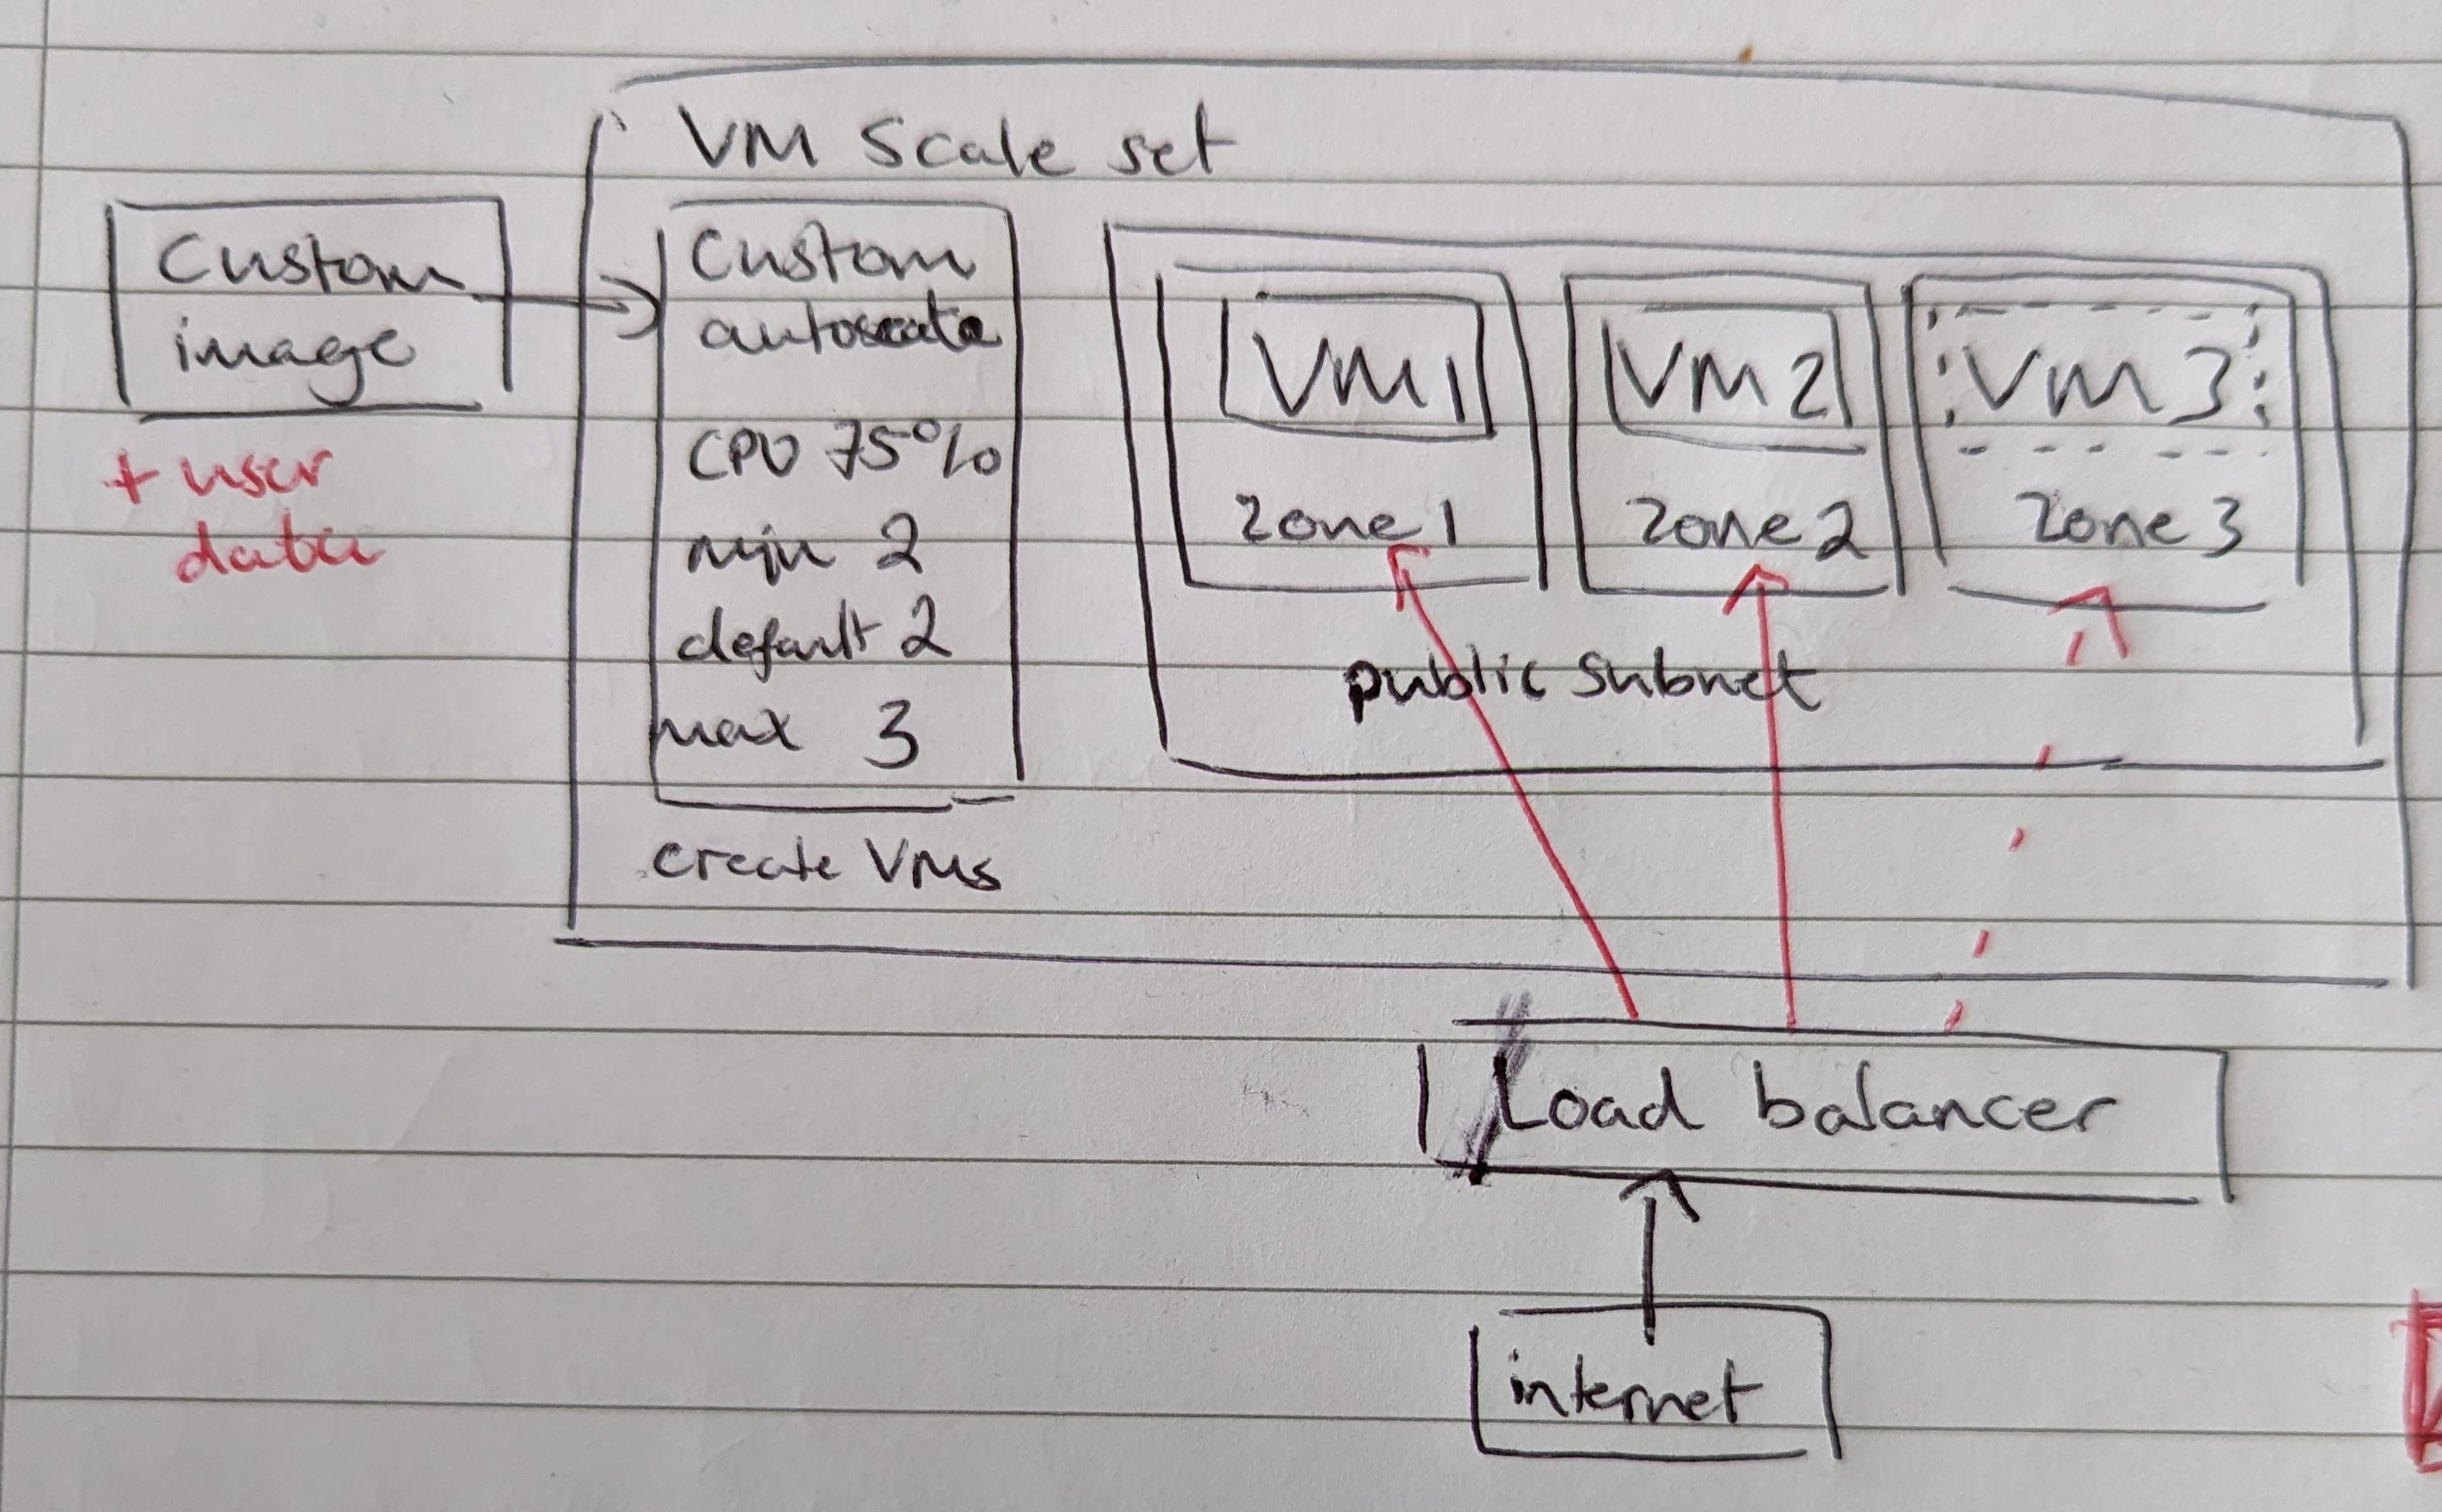 VM Scale set
Custom
image
+ user
data
Custom
autoscale
CPU 75%
min 2
default 2
max 3
create VMs
VM1
zone 1
VM2
zone 2
VM3
zone 3
public subnet
Load balancer
internet